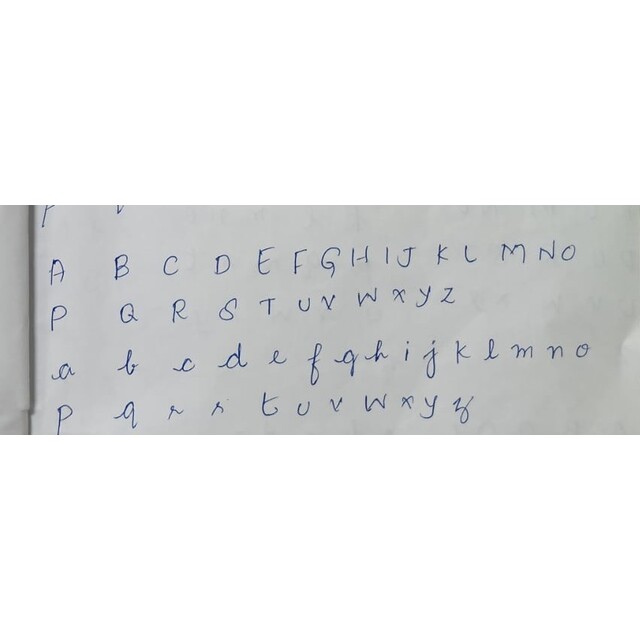 A B C D E F G H I J K L M N O
P Q R S T U V W X Y Z
a b c d e f g h i j k l m n o
p q r s t u v w x y z